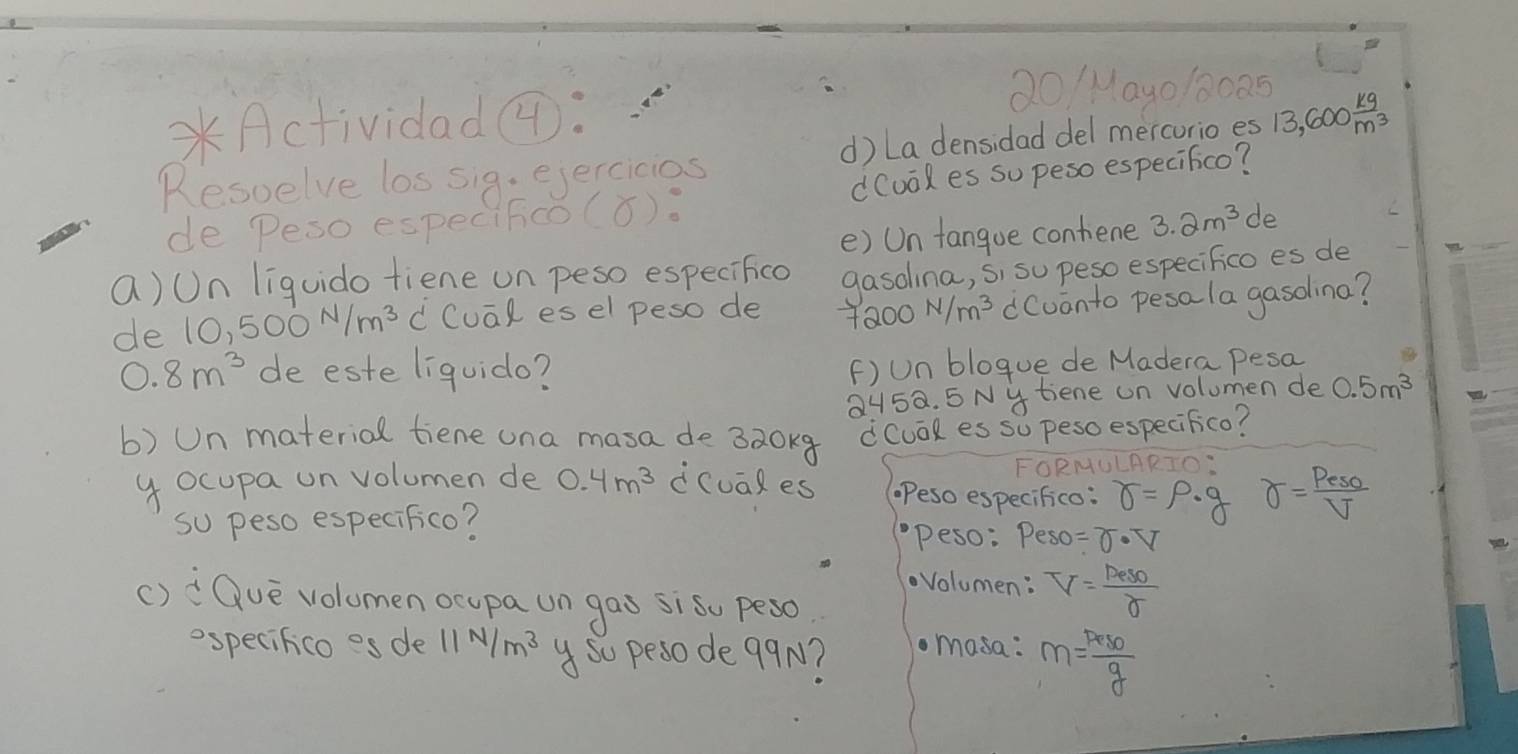 * Actividad ④:
Resuelve los sig. ejercicios
de Peso específico (γ):
a) Un líquido tiene un peso específico
de 10,500 N/m³ ¿Cuál es el peso de
0.8 m³ de este líquido?
b) Un material tiene una masa de 320kg
y ocupa un volumen de 0.4m³ ¿Cuál es
su peso específico?
c) ¿Qué volumen ocupa un gas si su peso
específico es de 11 N/m³ y su peso de 99N?
20/Mayo/2025
d) La densidad del mercurio es 13,600 kg/m³
¿Cuál es su peso específico?
e) Un tanque contiene 3.2m³ de
gasolina, si su peso específico es de
7200 N/m³ ¿Cuánto pesa la gasolina?
F) Un bloque de Madera pesa
2452.5 N y tiene un volumen de 0.5m³
¿Cuál es su peso específico?
FORMULARIO:
• Peso específico: γ = ρ·g γ = Peso/V
• Peso: Peso = γ·V
• Volumen: V = Peso/γ
• masa: m = Peso/g